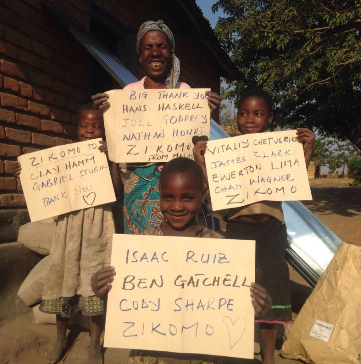 BIG THANK YOU
HANS HASKELL
JOEL GODFREY
NATHAN HOURS
ZIKOMO
FROM
ZIKOMO TO
CLAY HAMM
GABRIEL
THANK YOU
VITALIY CHETVERIK
JAMES CLARK
EWERTON LIMA
CHAD WAGNER
ZIKOMO
ISAAC RUIZ
BEN GATCHELL
CODY SHARPE
ZIKOMO